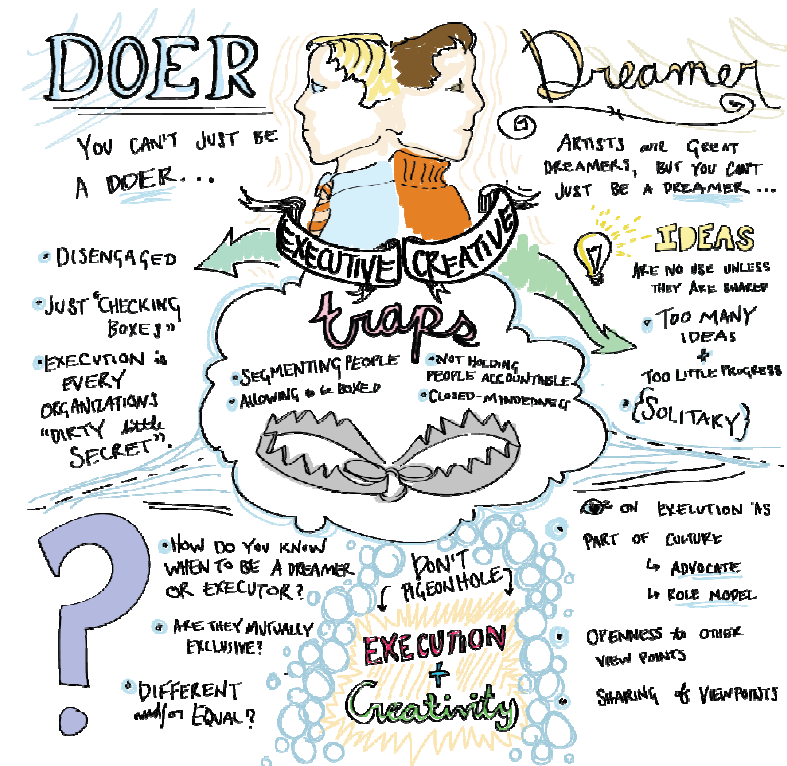 DOER
YOU CAN'T JUST BE
A DOER...
• DISENGAGED
• JUST "CHECKING
BOXES"
• EXECUTION is
EVERY
ORGANIZATIONS
"DIRTY little
SECRET".
Dreamer
ARTISTS are GREAT
DREAMERS, BUT YOU CAN'T
JUST BE A DREAMER...
IDEAS
ARE NO USE UNLESS
THEY ARE SHARED
• TOO MANY
IDEAS
+
TOO LITTLE PROGRESS
• {SOLITARY}
EXECUTIVE CREATIVE
traps
• SEGMENTING PEOPLE
• ALLOWING to be BOXED
• NOT HOLDING
PEOPLE ACCOUNTABLE
• CLOSED-MINDEDNESS
?
• HOW DO YOU KNOW
WHEN TO BE A DREAMER
OR EXECUTOR?
• ARE THEY MUTUALLY
EXCLUSIVE?
• DIFFERENT
and/or EQUAL?
DON'T
PIGEONHOLE
EXECUTION
+
Creativity
• ON EXECUTION AS
PART OF CULTURE
↳ ADVOCATE
↳ ROLE MODEL
• OPENNESS to OTHER
VIEW POINTS
• SHARING of VIEWPOINTS